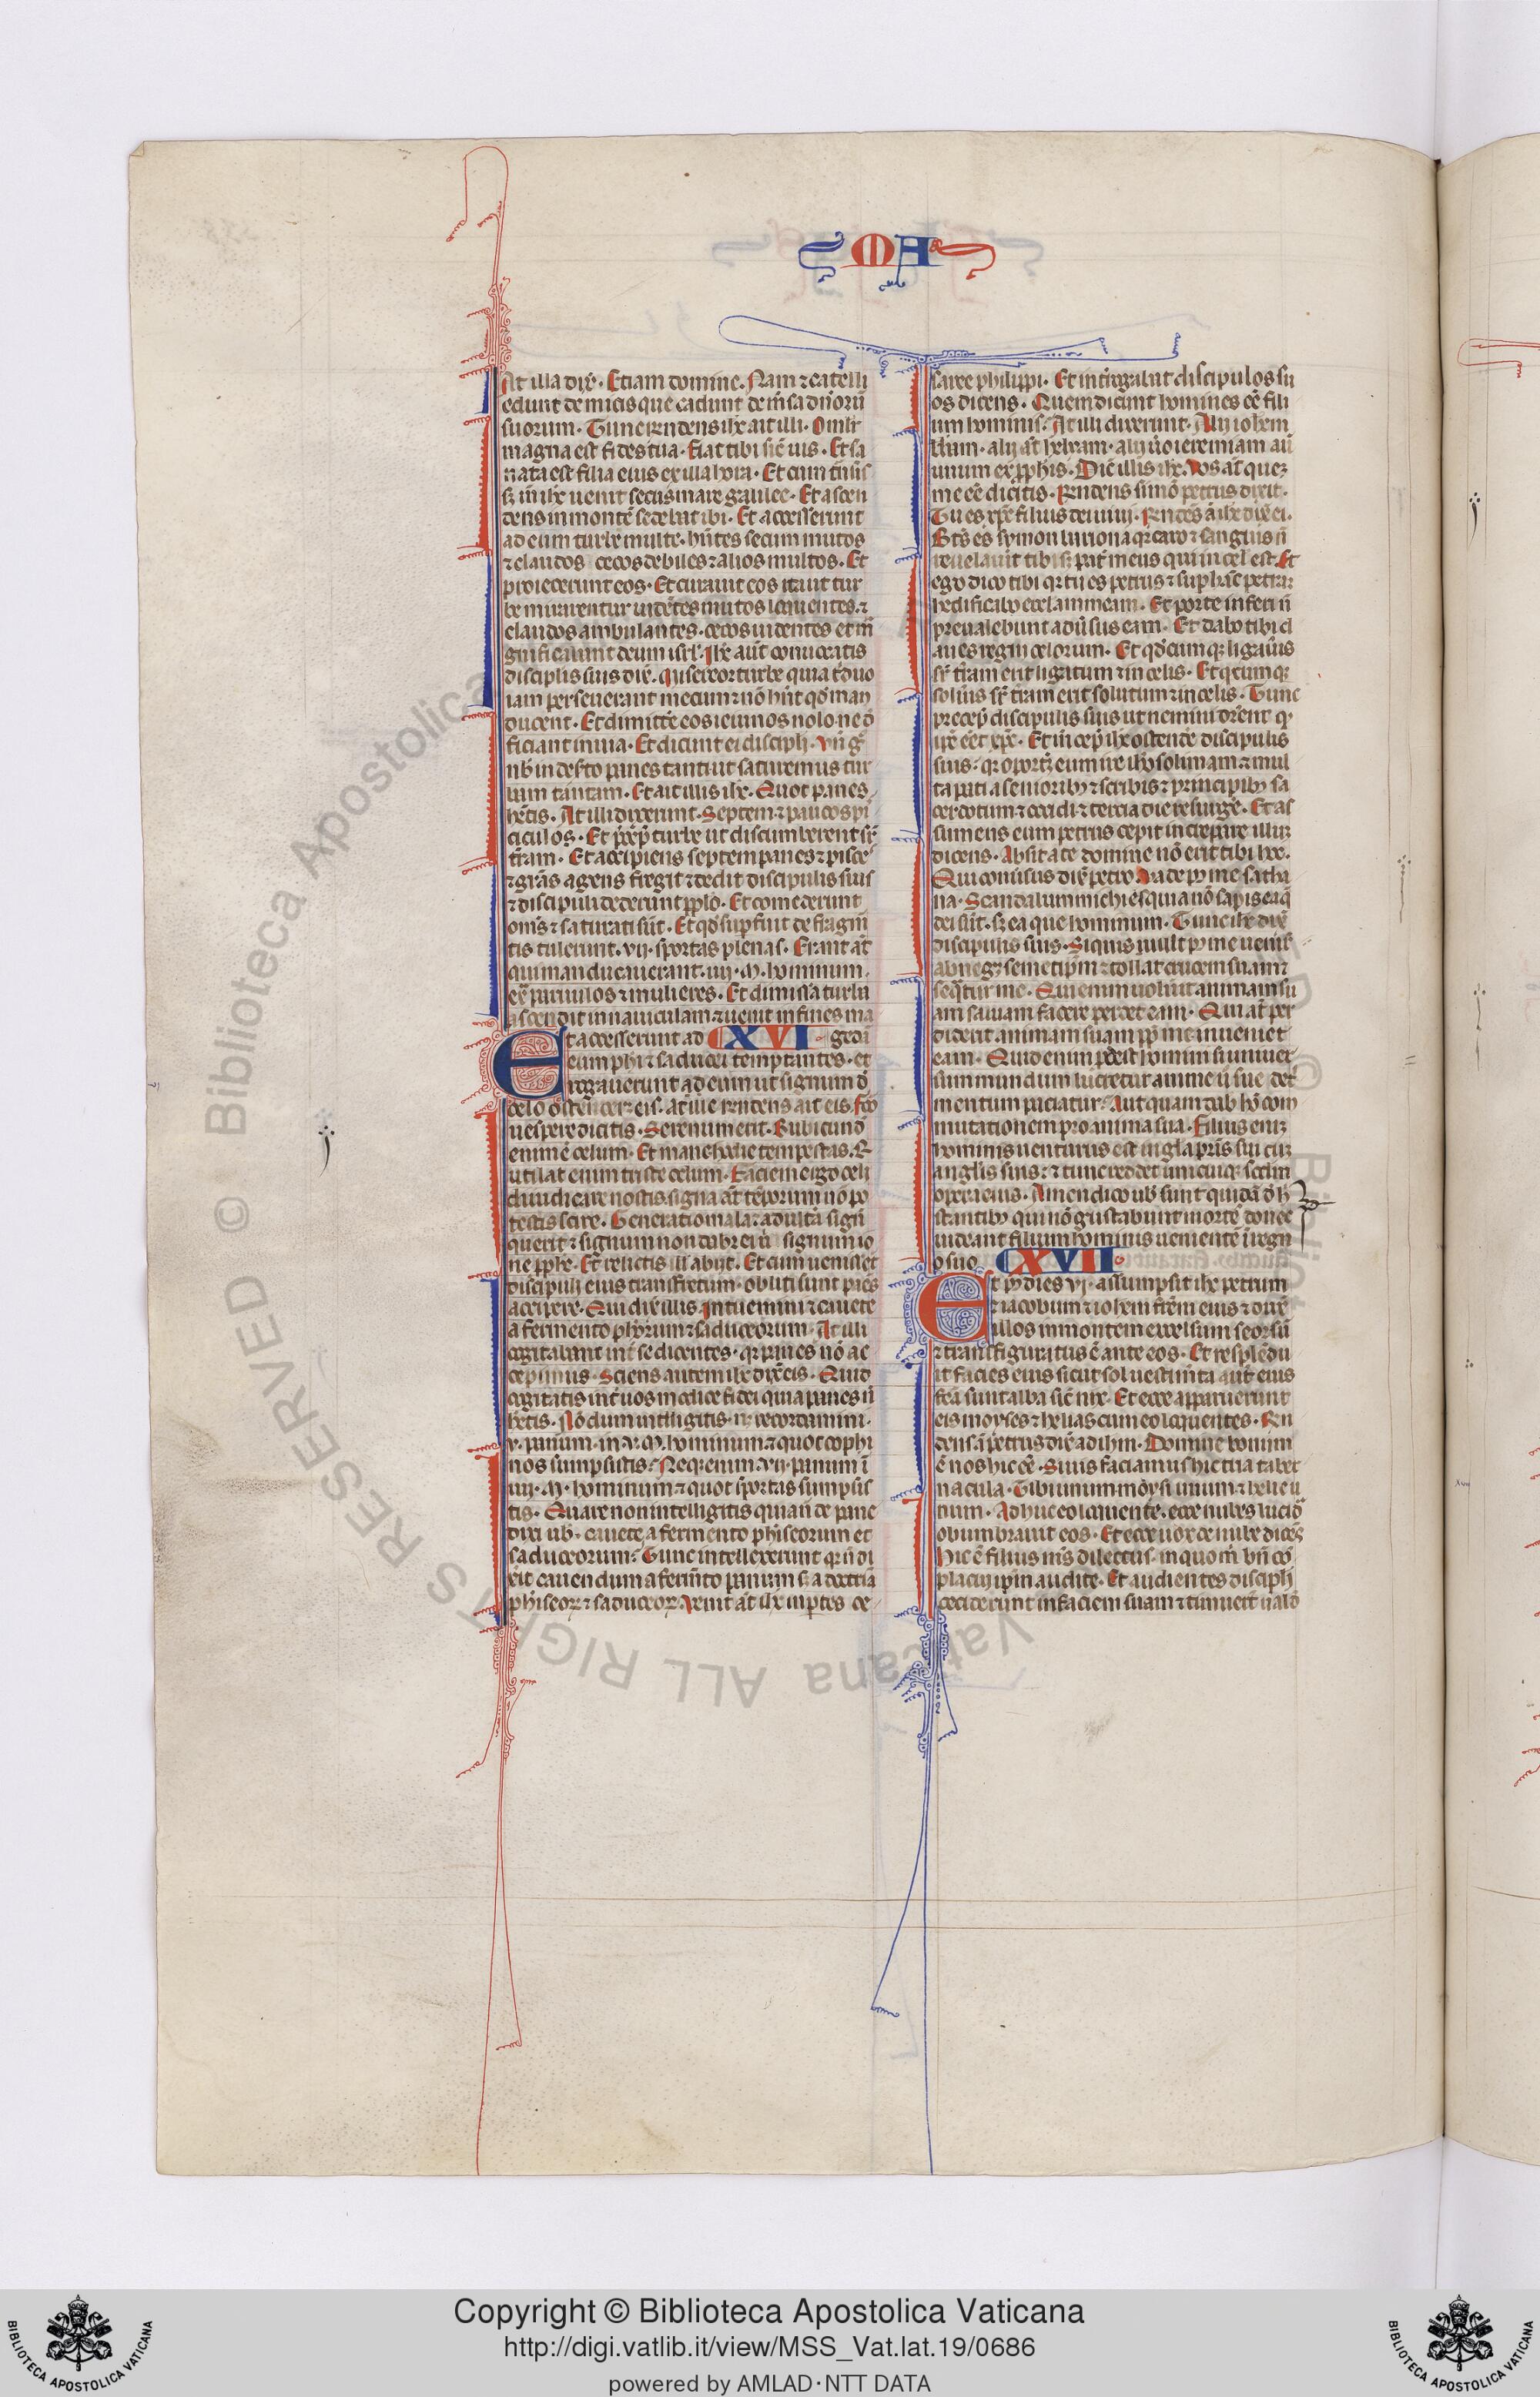 MA
At illa dix̄. Etiam domine. Nam ⁊ catelli
edunt de micis que cadunt de m̄sa dn̄orū
suorum. Tunc rn̄dens ih̄c ait illi. O mlr̄
magna est fides tua. fiat tibi sic̄ uis. Et sa
nata est filia eius ex illa hora. Et cum tn̄sis
s; in̄ ih̄c uenit secus mare galilee. Et ascen
dens in montē sedebat ibi. Et accesserunt
ad eum turbe multe. hn̄tes secum mutos
⁊ claudos cecos debiles ⁊ alios multos. Et
proiecerunt eos. Et curauit eos ita ut tur
be mirarentur uidētes mutos loquentes. ⁊
claudos ambulantes. cecos uidentes et m̄
gnificabant deum isrl̄. Ih̄c aūt conuocatis
disciplis suis dix̄. Misereor turbe quia t̄duo
iam perseuerant mecum ⁊ nō hn̄t qd̄ man
ducent. Et dimittē eos ieiunos nolo ne d̄
ficiant in uia. Et dicunt ei discipli. Vn̄ g̊
nb̄ in deserto panes tantos ut saturemus tur
bam tantam. Et ait illis ih̄c. Quot panes
hētis. At illi dixerunt. Septem ⁊ paucos pi
ciculos. Et p̄cep̄ turbe ut discumberent sr̄
t̄ram. Et accipiens septem panes ⁊ pisces
⁊ grās agens fregit ⁊ dedit discipulis suis
⁊ discipuli dederunt pplō. Et comederunt
om̄s ⁊ saturati sūt. Et qd̄ supfuit de fragm̄
tis tulerunt. vij. sportas plenas. Erant at̄
qui manducauerant. iiij. M. hominum.
ex̄ paruulos ⁊ mulieres. Et dimissa turba
ascendit in nauiculam ⁊ uenit in fines ma
Et accesserunt ad XVI gedā
eum phi ⁊ saducei temptantes. et
rogauerunt ad eum ut signum d̄
celo ostenderet eis. At ille rn̄dens ait eis. fc̄o
uespere dicitis. Serenum erit. Rubicund̄
enim ē celum. Et mane hodie tempestas. R
utilat enim triste celum. Faciem ergo celi
diiudicare nostis signa at̄ tēporum nō po
testis scire. Generatio mala ⁊ adultā signū
querit ⁊ signum non dabr̄ ei n̄ signum io
ne pphē. Et relictis ill̄ abijt. Et cum uenisset
discipuli eius trans fretum. obliti sunt panes
accipere. Qui dix̄ illis. Intuemini ⁊ cauete
a fermento phōrum ⁊ saduceorum. At illi
cogitabant int̄ se dicentes. qr̄ panes nō ac
cepimus. Sciens autem ih̄c dix̄ eis. Quid
cogitatis int̄ uos modice fidei quia panes n̄
hētis. Nō dum intlligitis. n̄ recordamini.
v. panum. in v. M. hominum ⁊ quot cophi
nos sumpsistis. Neq; enim. vij. panum ī
iiij. M. hominum ⁊ quot sportas sumpsis
tis. Quare non intelligitis quia n̄ de pane
dixi ub̄. cauete a fermento phīseorum et
saduceorum. Tunc intellexerunt qr̄ n̄ di
xit cauendum a fermēto panum s; a doctrīa
phīseor; ⁊ saduceor;. Venit at̄ ih̄c in ptes ce
saree philippi. Et int̄rogabat discipulos su
os dicens. Quem dicunt homines ee̅ fili
um hominis. At illi dixerunt. Alij iohem
bb̄am. alij at̄ heliam. alij u̅o ieremiam aū
unum ex pphis. Dic̄ illis ih̄c. Vos at̄ quez
me ee̅ dicitis. Rn̄dens simō petrus dixit.
Tu es xpc̄ filius dei uiui. Rn̄dēs ā ih̄c dix̄ ei.
Bt̄s es symon bariona qr̄ caro ⁊ sanguis n̄
reuelauit tibi s; pat̄ meus qui in cel̄ est. Et
ego dico tibi qr̄ tu es petrus ⁊ sup hāc petraz
hedificabo eccl̄iam meam. Et porte inferi n̄
preualebunt adūsus eam. Et dabo tibi cl
aues regni celorum. Et qd̄cumq; ligaūis
sr̄ t̄ram erit ligatum ⁊ in celis. Et q̄cumq;
soluīs sr̄ t̄ram erit solutum ⁊ in celis. Tunc
precep̄ discipulis suis ut nemini dic̄ent q̄
ip̄e eēt xpc̄. Et in̄ cep̄ ih̄c ostendē discipulis
suis. qr̄ oportz eum ire ihr̄osolimam ⁊ mul
ta pati a seniorib; ⁊ scribis ⁊ principib; sa
cerdotum ⁊ occidi ⁊ tercia die resurgē. Et as
sumens eum petrus cepit increpare illuz
dicens. Absit a te domine nō erit tibi hoc.
Qui conūsus dix̄ petro. Vade p; me satha
na. Scandalum michi es quia nō sapis ea q̄
dei sūt. s; ea que hominum. Tunc ih̄c dix̄
discipulis suis. Si quis uult p; me uenir̄
abneg; semetip̄m ⁊ tollat crucem suam ⁊
seq̄tur me. Qui enim uolūit animam su
am saluam facere perdet eam. Qui at̄ per
diderit animam suam pp̄ me inueniet
eam. Quid enim pdest homini si uniuer
sum mundum lucretur anime ū sue det̄
mentum patiatur. Aut quam dab̄ hō com
mutationem pro anima sua. Filius eniz
hominis uenturus est in glā pr̄is sui cuz
angl̄is suis. ⁊ tunc reddet unicuiq; scdm̄
opera eius. Amen dico ub̄ sunt quidā d̄ h̄
stantib; qui nō gustabunt mortē donec
uideant filium hominis uenientē ī regn
o suo XVII
Et p; dies vj. assumpsit ih̄c petrum
⁊ iacobum ⁊ iohem fr̄em eius ⁊ dux̄
illos in montem excelsum seorsū
⁊ transfiguratus ē ante eos. Et resplēdu
it facies eius sicut sol uestim̄ta aūt eius
fcā sunt alba sic̄ nix. Et ecce apparuerunt
eis moyses ⁊ helias cum eo loquentes. Rn̄
dens ā petrus dix̄ ad ihm̄. Domine bonum
ē nos hic ee̅. Si uis faciamus hic tria taber
nacula. Tibi unum. moysi unum ⁊ helie u
num. Adhuc eo loquente. ecce nubes lucid̄
obumbrauit eos. Et ecce uox de nube dicēs
Hic ē filius ms̄ dilectus in quo m̄ bn̄ cō
placuj ip̄m audite. Et audientes discipli
ceciderunt in faciem suam ⁊ timuer̄t ualde
Copyright © Biblioteca Apostolica Vaticana
http://digi.vatlib.it/view/MSS_Vat.lat.19/0686
powered by AMLAD·NTT DATA
BIBLIOTECA APOSTOLICA VATICANA
BIBLIOTECA APOSTOLICA VATICANA
© Biblioteca Apostolica Vaticana ALL RIGHTS RESERVED